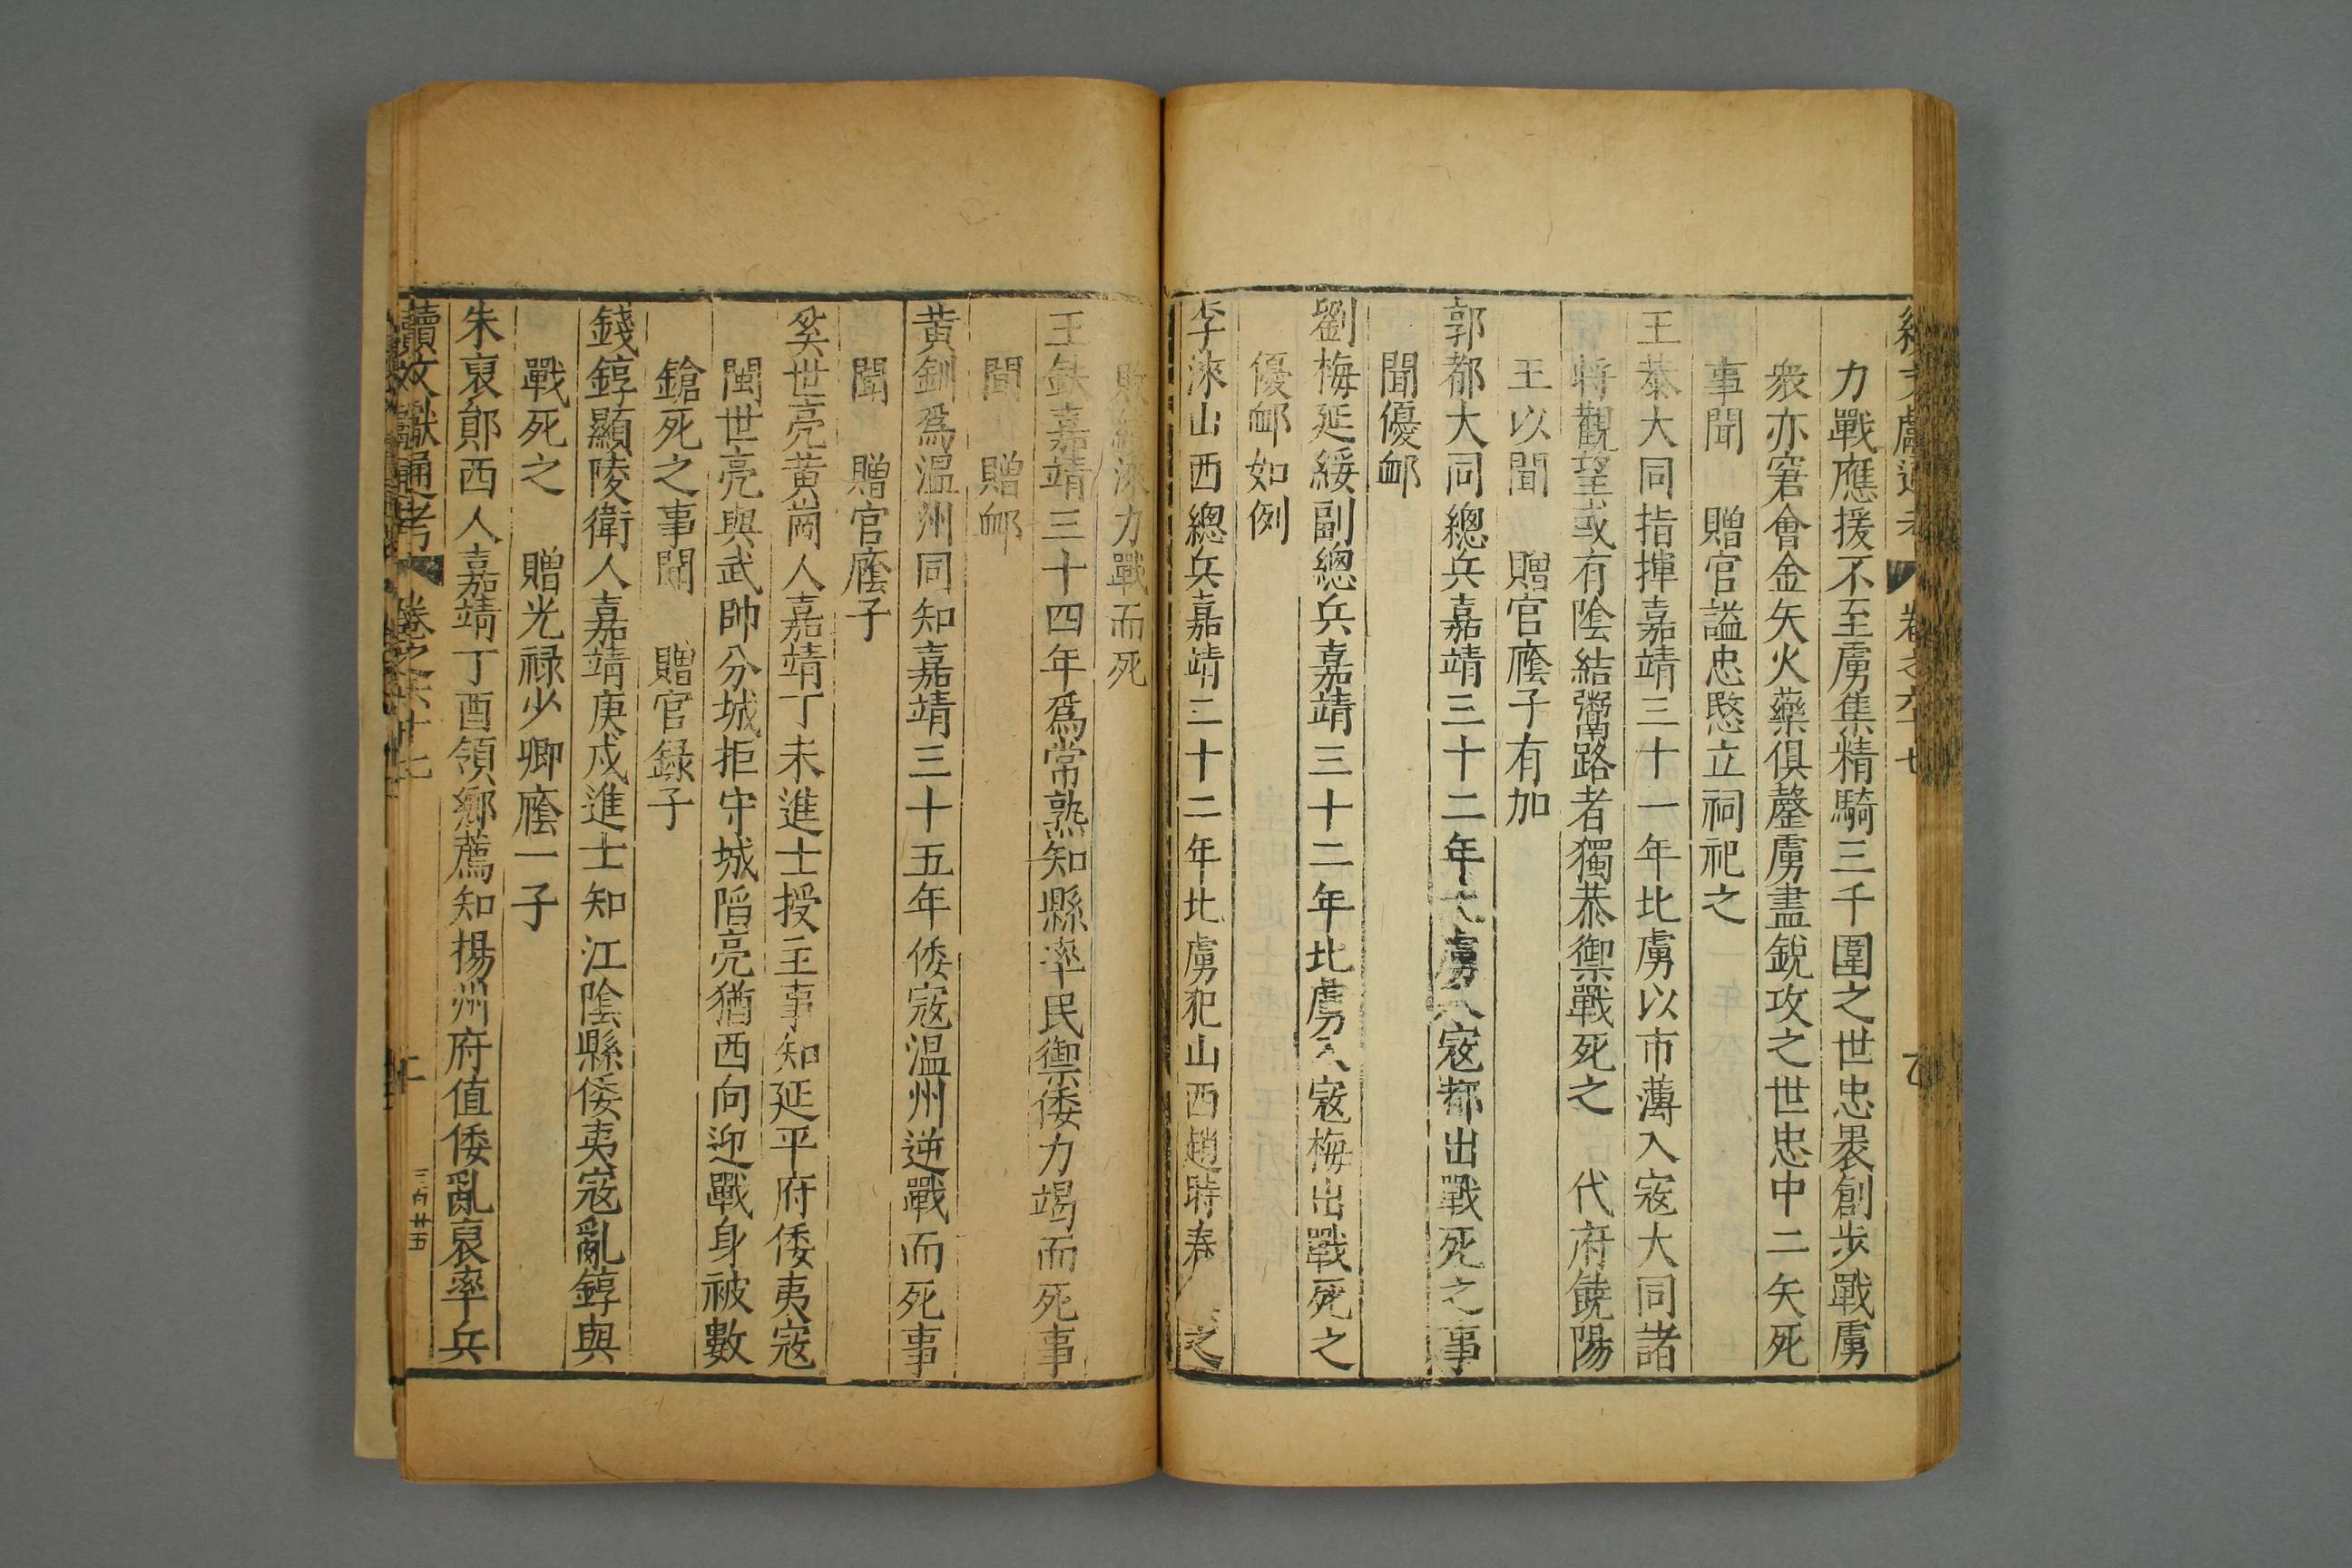 力戰應援不至虜集精騎三千圍之世忠裹創步戰虜
衆亦窘會金矢火藥俱罄虜盡銳攻之世忠中二矢死
事聞 贈官謚忠愍立祠祀之
王恭大同指揮嘉靖三十一年北虜以市薄入寇大同諸
將觀望或有陰結鬻路者獨恭禦戰死之 代府饒陽
王以聞 贈官廕子有加
郭都大同總兵嘉靖三十二年大虜入寇都出戰死之事
聞優衈
劉梅延綏副總兵嘉靖三十二年北虜入寇梅出戰死之
優衈如例
李淶山西總兵嘉靖三十二年北虜犯山西趙時春 之
敗績淶力戰而死
王鈇嘉靖三十四年爲常熟知縣率民禦倭力竭而死事
聞 贈衈
黃釧爲溫州同知嘉靖三十五年倭寇溫州逆戰而死事
聞 贈官廕子
奚世亮黃崗人嘉靖丁未進士授主事知延平府倭夷寇
閩世亮與武帥分城拒守城陷亮猶西向迎戰身被數
鎗死之事聞 贈官録子
錢錞顯陵衛人嘉靖庚戍進士知江陰縣倭夷寇亂錞與
戰死之 贈光禄少卿廕一子
朱裒鄖西人嘉靖丁酉領鄉薦知揚州府值倭亂裒率兵
續文獻通考 卷之六十七
三百廿五